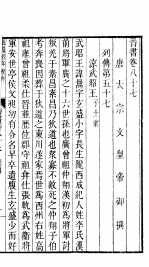 晉書卷八十七
唐太宗文皇帝御撰
列傳第五十七
涼武昭王 子士業
武昭王諱暠字玄盛小字長生隴西成紀人姓李氏漢
前將軍廣之十六世孫也廣曾祖仲翔漢初爲將軍討
叛羌于素昌素昌乃狄道也衆寡不敵死之仲翔子伯
考奔喪因葬于狄道之東川遂家焉世爲西州右姓高
祖雍曾祖柔仕晉並歷位郡守祖弇仕張軌爲武衞將
軍安世亭侯父昶幼有令名早卒遺腹生玄盛少而好